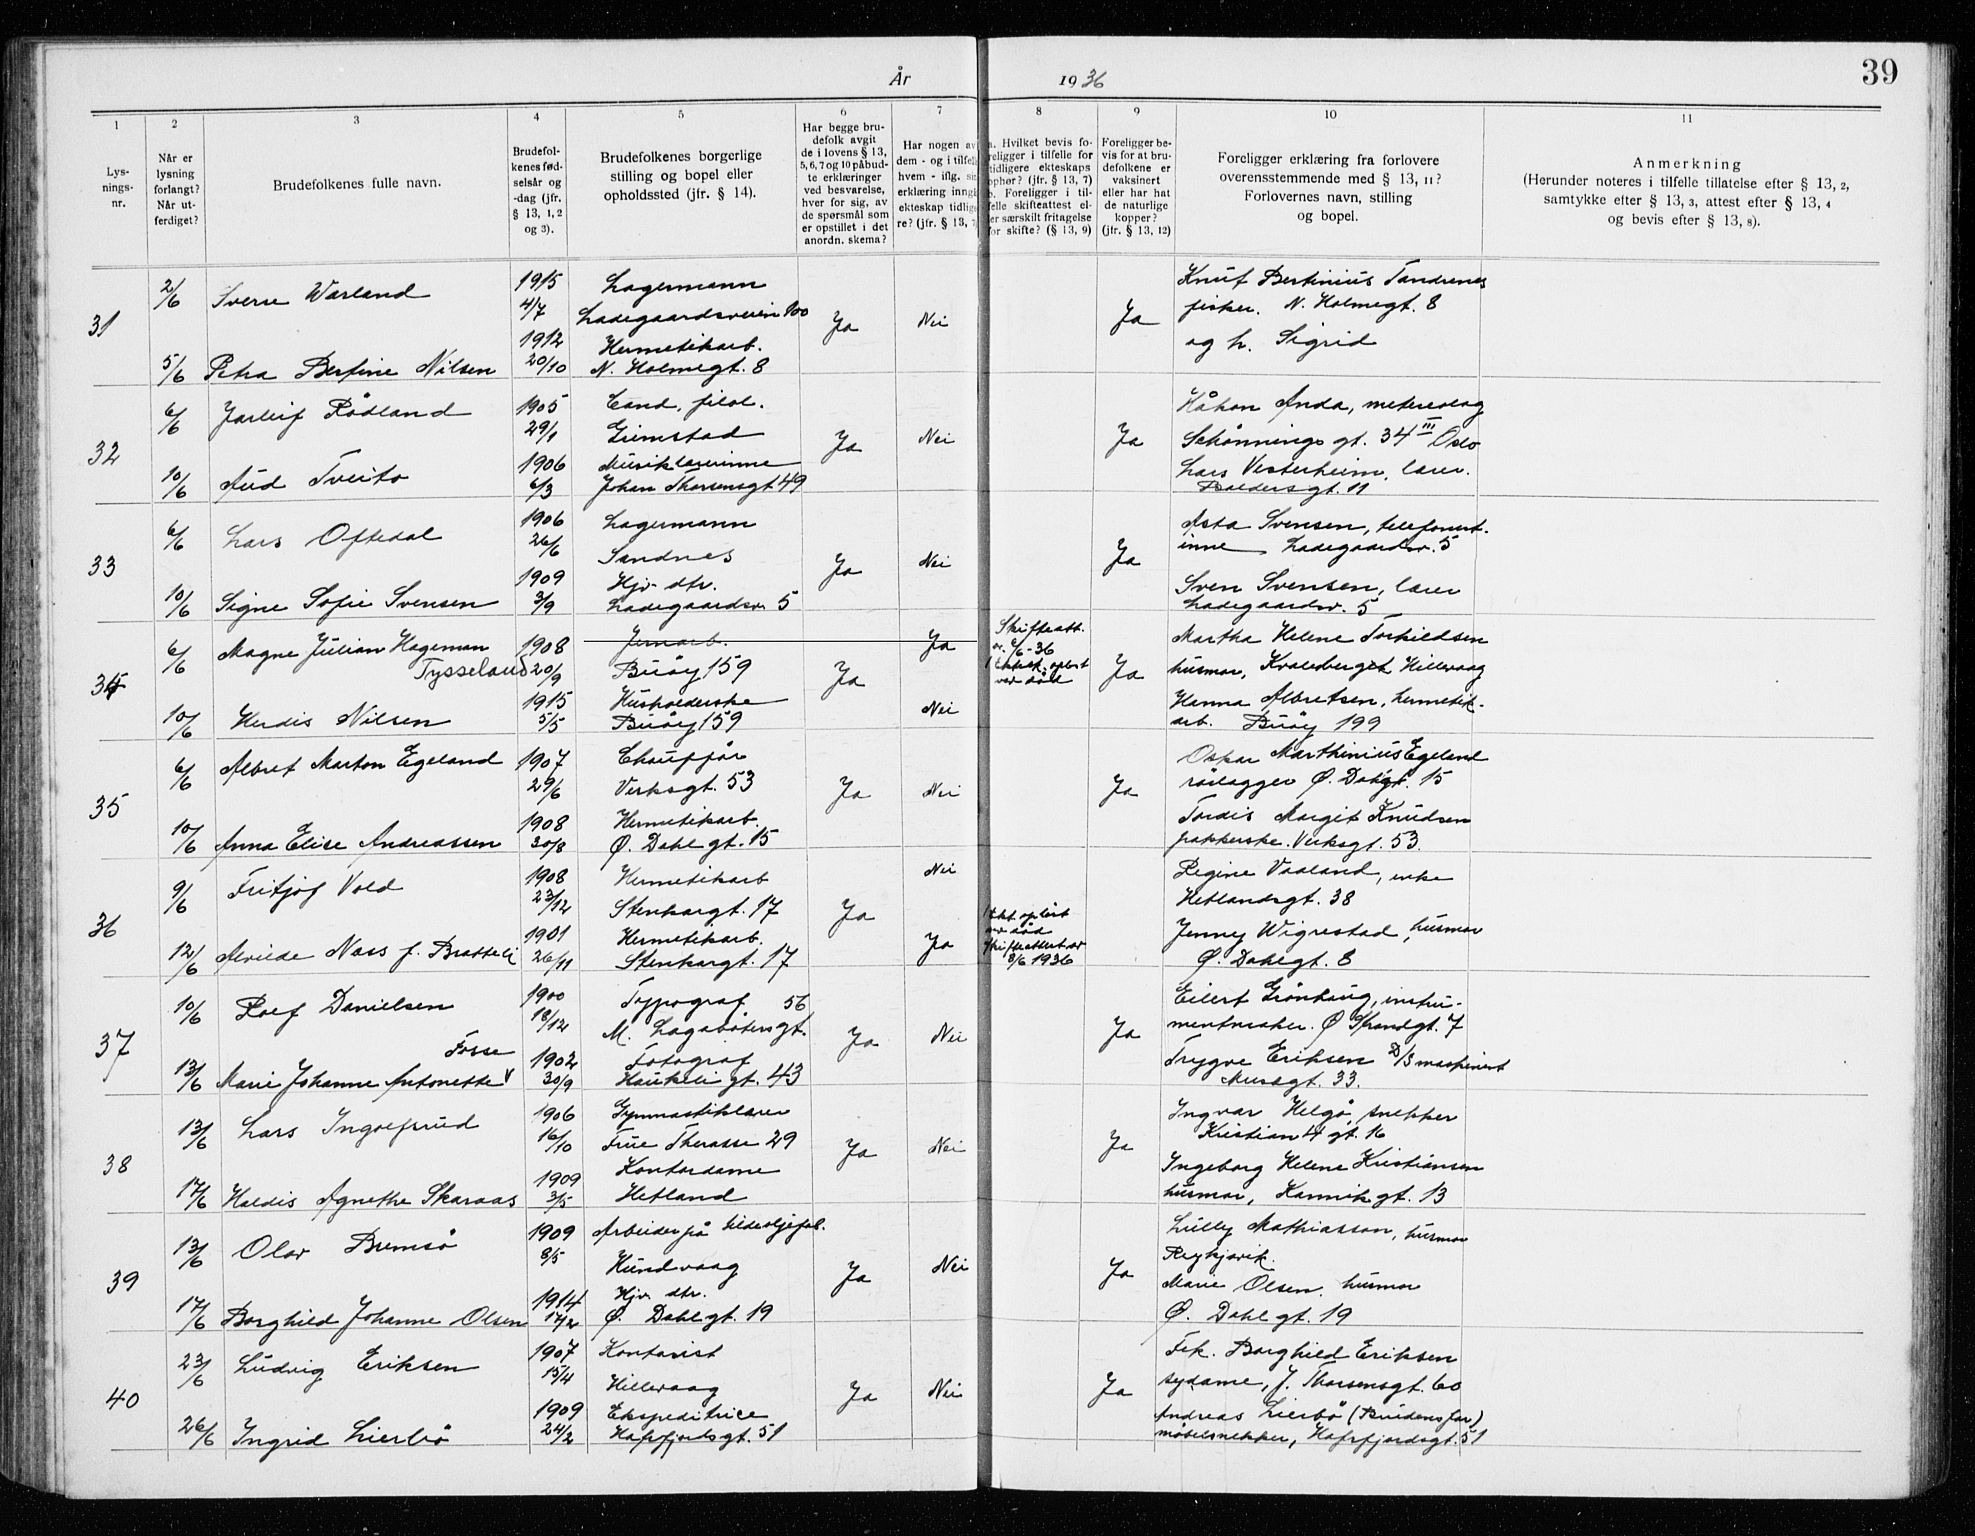 År 1936
39
1
2
3
4
5
6
7
8
9
10
11
Lys-
nings-
nr.
Når er
lysning
forlangt?
Når ut-
ferdiget?
Brudefolkenes fulle navn.
Brudefol-
kenes fød-
selsår og
-dag (jfr.
§ 13, 1, 2
og 3).
Brudefolkenes borgerlige
stilling og bopel eller
opholdssted (jfr. § 14).
Har begge bru-
defolk avgit
de i lovens § 13,
5, 6, 7 og 10 påbud-
te erklæringer
ved besvarelse,
hver for sig, av
de spørsmål som
er opstillet i det
anordn. skema?
Har nogen av
dem - og i tilfelle
hvem - iflg. sin
erklæring inngå
ekteskap tidlige
re? (jfr. § 13, 7
a. Hvilket bevis fo-
religger i tilfelle for
tidligere ekteskaps
ophør? (jfr. § 13, 7)
b. Foreligger i til-
felle skifteattest el-
ler særskilt fritagelse
for skifte? (§ 13, 9)
Foreligger be-
vis for at bru-
defolkene er
vaksinert
eller har hat
de naturlige
kopper?
(jfr. § 13, 12)
Foreligger erklæring fra forlovere
overensstemmende med § 13, 11?
Forlovernes navn, stilling
og bopel.
Anmerkning
(Herunder noteres i tilfelle tillatelse efter § 13, 2,
samtykke efter § 13, 3, attest efter § 13, 4
og bevis efter § 13, 8).
31
2/6 Sverre Warland 1915 Lagermann
4/7 Ladegaardsveien 100
Ja Nei Ja
1912 Hermetikarb.
5/6 Petra Bertine Nilsen 20/10 N. Holmegt. 8
Knut Bertinius Tandrenes
fisker. N. Holmegt. 8
og h. Sigrid
32
6/6 Jarleif Rødland 1905 Cand. filol.
29/1 Grimstad
Ja Nei Ja
1906 Musiklærerinne
10/6 Aud Tveito 6/3 Johan Thorsensgt 49
Håkon Anda, metereolog
Schønnings gt. 34 III Oslo
Lars Vesterheim, lærer.
Baldersgt. 11
33
6/6 Lars Oftedal 1906 Lagermann
26/6 Sandnes
Ja Nei Ja
1909 Hjv. dtr.
10/6 Signe Sofie Svensen 3/9 Ladegaardsv. 5
Asta Svensen, telefonist-
inne Ladegaardsv. 5
Sven Svensen, lærer
Ladegaardsv. 5
34
6/6 Magne Julian Hageman 1908 Jernarb.
Tysseland 20/9 Buøy 159
Ja Ja Ja
Skifteatt.
av 6/6-36
1 Ektesk. opløst
ved død
1915 Husholderske
10/6 Herdis Nilsen 5/5 Buøy 159
Nei
Martha Helene Torkildsen
husmor, Kvaleberget Hillevaag
Hanna Albretsen, hermetik-
arb. Buøy 199
35
6/6 Albret Marton Egeland 1907 Chauffør
29/6 Verksgt. 53
Ja Nei Ja
1908 Hermetikarb.
10/6 Anna Elise Andreassen 30/8 Ø. Dahlgt. 15
Oskar Marthinius Egeland
rørlægger Ø. Dahlgt. 15
Tordis Margit Knudsen
pakkerske. Verksgt. 53
36
9/6 Fritjof Vold 1908 Hermetikarb
23/12 Stenkargt. 17
Ja Nei
1901 Hermetikarb.
12/6 Alvilde Næss f. Bratteli 26/11 Stenkargt. 17
Ja
1 ekt. opløst
ved død
Skifteattest av
8/6 1936
Regine Vaaland, enke
Hetlandsgt. 38
Jenny Wigrestad, husmor
Ø. Dahlgt. 8
37
10/6 Rolf Danielsen 1900 Typograf 56
18/12 M. Lagabøtersgt.
Ja Nei Ja
Fosse 1902 Fotograf
13/6 Marie Johanne Antonette V 30/9 Haukeli gt. 43
Eilert Grønhaug, instru-
mentmaker. Ø Strandgt. 7
Trygve Eriksen D/S maskinist
Musègt. 33.
38
13/6 Lars Ingolfsrud 1906 Gymnastiklærer
16/10 Frue Therasse 29
Ja Nei Ja
1909 Kontordame
17/6 Haldis Agnethe Skaraas 3/5 Hetland
Ingvar Helgø, snekker
Kristian 4 gt. 16
Ingeborg Helene Kristiansen
husmor, Kannik gt. 13
39
13/6 Olav Bremsø 1909 Arbeider på sildeoljefab.
8/5 Hundvaag
Ja Nei Ja
1914 Hjv. dtr.
17/6 Borghild Johanne Olsen 17/2 Ø. Dahl gt. 19
Lilly Mathiasson, husmor
Reykjavik.
Marie Olsen, husmor
Ø. Dahl gt. 19
40
23/6 Ludvig Eriksen 1907 Kontorist
15/4 Hillevaag
Ja Nei Ja
1909 Ekspeditrice
26/6 Ingrid Lierbø 24/2 Hafrsfjordsgt. 51
Frk. Borghild Eriksen
sydame, J. Thorsensgt. 60
Andreas Lierbø (Brudens far)
møbelsnekker, Hafrsfjordsgt. 51